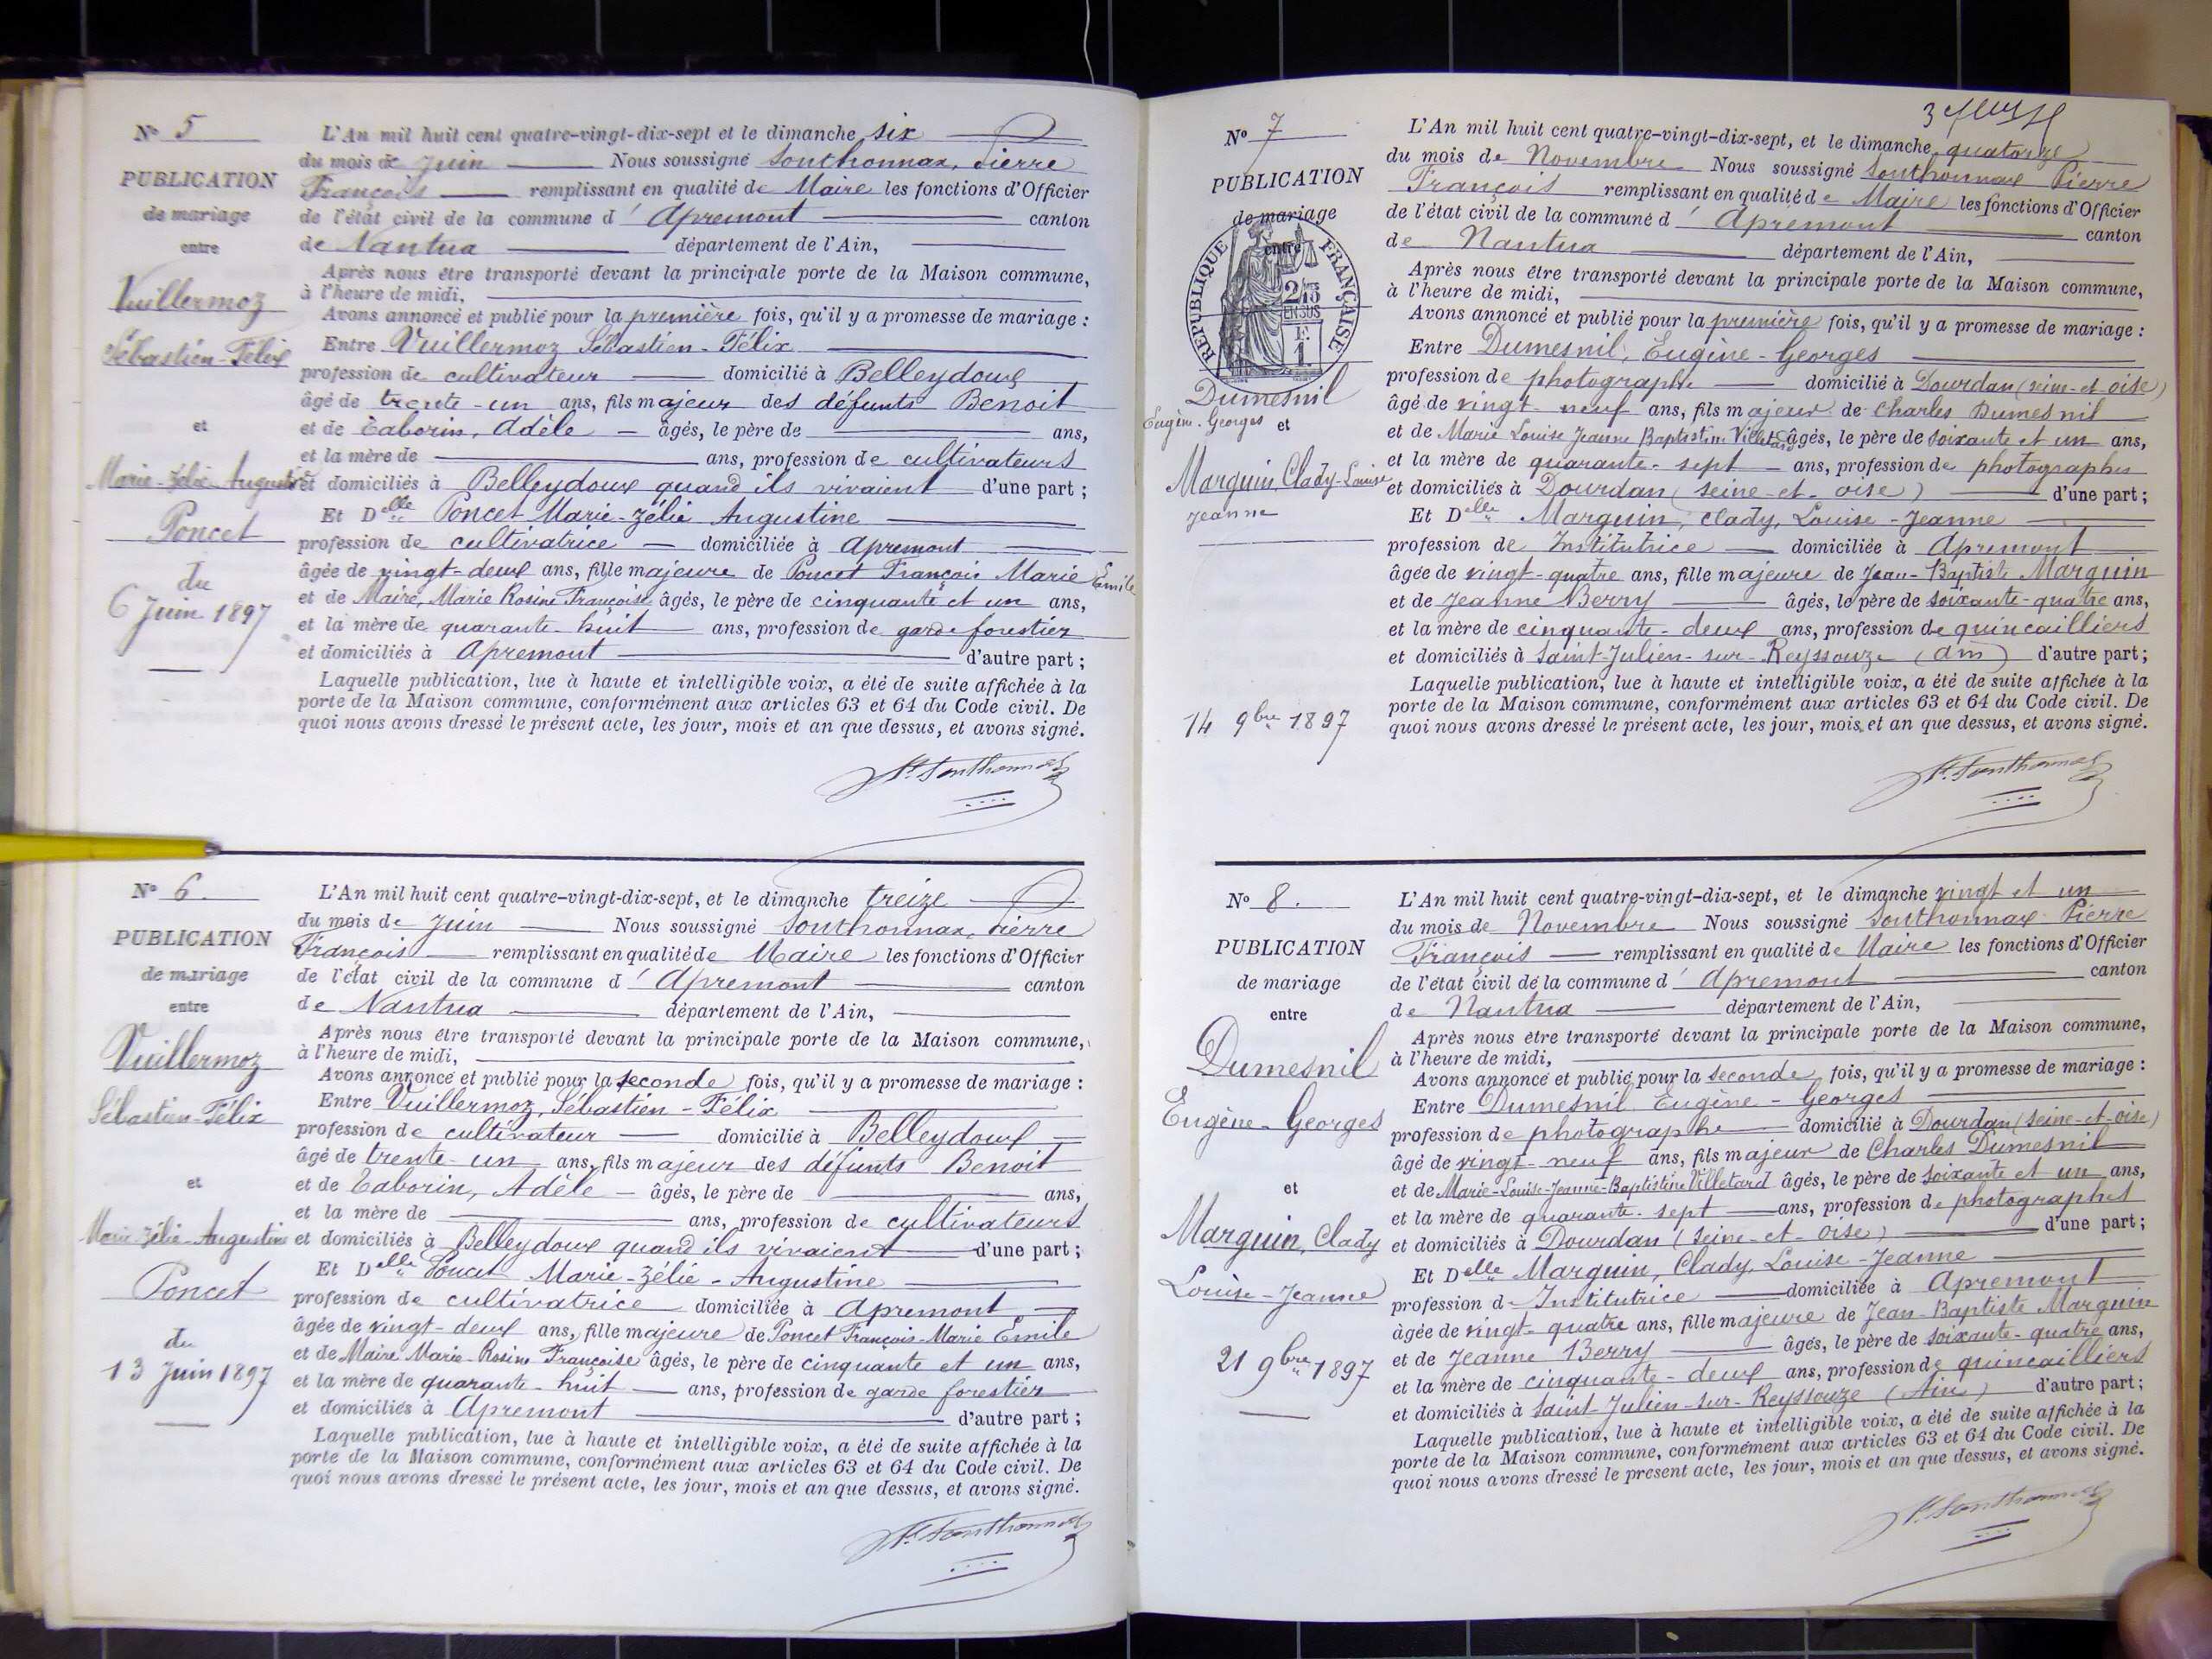 N° 5
PUBLICATION
de mariage
entre
Vuillermoz
Sébastien-Félix
et
Marie-Zélie Augustine
Poncet
du
6 Juin 1897
L'An mil huit cent quatre-vingt-dix-sept et le dimanche six
du mois de Juin Nous soussigné Sonthonnax, Pierre
François remplissant en qualité de Maire les fonctions d'Officier
de l'état civil de la commune d' Apremont canton
de Nantua département de l'Ain,
Après nous être transporté devant la principale porte de la Maison commune,
à l'heure de midi,
Avons annoncé et publié pour la première fois, qu'il y a promesse de mariage :
Entre Vuillermoz Sébastien-Félix
profession de cultivateur domicilié à Belleydoux
âgé de trente-un ans, fils majeur des défunts Benoit
et de Taborin, Adèle âgés, le père de ans,
et la mère de ans, profession de cultivateurs
et domiciliés à Belleydoux quand ils vivaient d'une part ;
Et Delle Poncet Marie-Zélie Augustine
profession de cultivatrice domiciliée à Apremont
âgée de vingt-deux ans, fille majeure de Poncet François Marie Emile
et de Maire, Marie Rosine Françoise âgés, le père de cinquante et un ans,
et la mère de quarante-huit ans, profession de garde forestier
et domiciliés à Apremont d'autre part ;
Laquelle publication, lue à haute et intelligible voix, a été de suite affichée à la
porte de la Maison commune, conformément aux articles 63 et 64 du Code civil. De
quoi nous avons dressé le présent acte, les jour, mois et an que dessus, et avons signé.
Pe Sonthonnax
N° 6.
PUBLICATION
de mariage
entre
Vuillermoz
Sébastien-Félix
et
Marie Zélie-Augustine
Poncet
du
13 Juin 1897
L'An mil huit cent quatre-vingt-dix-sept, et le dimanche treize
du mois de Juin Nous soussigné Sonthonnax, Pierre
François remplissant en qualité de Maire les fonctions d'Officier
de l'état civil de la commune d' Apremont canton
de Nantua département de l'Ain,
Après nous être transporté devant la principale porte de la Maison commune,
à l'heure de midi,
Avons annoncé et publié pour la seconde fois, qu'il y a promesse de mariage :
Entre Vuillermoz, Sébastien-Félix
profession de cultivateur domicilié à Belleydoux
âgé de trente-un ans, fils majeur des défunts Benoit
et de Taborin, Adèle âgés, le père de ans,
et la mère de ans, profession de cultivateurs
et domiciliés à Belleydoux quand ils vivaient d'une part ;
Et Delle Poncet Marie-Zélie-Augustine
profession de cultivatrice domiciliée à Apremont
âgée de vingt-deux ans, fille majeure de Poncet François-Marie Emile
et de Maire Marie-Rosine Françoise âgés, le père de cinquante et un ans,
et la mère de quarante-huit ans, profession de garde forestier
et domiciliés à Apremont d'autre part ;
Laquelle publication, lue à haute et intelligible voix, a été de suite affichée à la
porte de la Maison commune, conformément aux articles 63 et 64 du Code civil. De
quoi nous avons dressé le présent acte, les jour, mois et an que dessus, et avons signé.
Pe Sonthonnax
N° 7
PUBLICATION
de mariage
entre
REPUBLIQUE FRANÇAISE
2/10
EN SUS
F.
1.
Dumesnil
Eugène-Georges et
Marguin Clady-Louise
Jeanne
14 9bre 1897
L'An mil huit cent quatre-vingt-dix-sept, et le dimanche quatorze
du mois de Novembre Nous soussigné Sonthonnax Pierre
François remplissant en qualité de Maire les fonctions d'Officier
de l'état civil de la commune d' Apremont canton
de Nantua département de l'Ain,
Après nous être transporté devant la principale porte de la Maison commune,
à l'heure de midi,
Avons annoncé et publié pour la première fois, qu'il y a promesse de mariage :
Entre Dumesnil, Eugène-Georges
profession de photographe domicilié à Dourdan (seine-et-oise)
âgé de vingt-neuf ans, fils majeur de Charles Dumesnil
et de Marie Louise Jeanne Baptistine Villetard âgés, le père de soixante et un ans,
et la mère de quarante-sept ans, profession de photographes
et domiciliés à Dourdan (seine-et-oise) d'une part ;
Et Delle Marguin, Clady, Louise-Jeanne
profession de Institutrice domiciliée à Apremont
âgée de vingt-quatre ans, fille majeure de Jean-Baptiste Marguin
et de Jeanne Berry âgés, le père de soixante-quatre ans,
et la mère de cinquante-deux ans, profession de quincailliers
et domiciliés à Saint-Julien-sur-Reyssouze (Ain) d'autre part ;
Laquelle publication, lue à haute et intelligible voix, a été de suite affichée à la
porte de la Maison commune, conformément aux articles 63 et 64 du Code civil. De
quoi nous avons dressé le présent acte, les jour, mois et an que dessus, et avons signé.
Pe Sonthonnax
N° 8.
PUBLICATION
de mariage
entre
Dumesnil
Eugène-Georges
et
Marguin, Clady
Louise-Jeanne
21 9bre 1897
L'An mil huit cent quatre-vingt-dia-sept, et le dimanche vingt et un
du mois de Novembre Nous soussigné Sonthonnax Pierre
François remplissant en qualité de Maire les fonctions d'Officier
de l'état civil de la commune d' Apremont canton
de Nantua département de l'Ain,
Après nous être transporté devant la principale porte de la Maison commune,
à l'heure de midi,
Avons annoncé et publié pour la seconde fois, qu'il y a promesse de mariage :
Entre Dumesnil Eugène-Georges
profession de photographe domicilié à Dourdan (seine-et-oise)
âgé de vingt-neuf ans, fils majeur de Charles Dumesnil
et de Marie-Louise-Jeanne-Baptistine Villetard âgés, le père de soixante et un ans,
et la mère de quarante-sept ans, profession de photographes
et domiciliés à Dourdan (seine-et-oise) d'une part ;
Et Delle Marguin, Clady, Louise-Jeanne
profession d'Institutrice domiciliée à Apremont
âgée de vingt-quatre ans, fille majeure de Jean-Baptiste Marguin
et de Jeanne Berry âgés, le père de soixante-quatre ans,
et la mère de cinquante-deux ans, profession de quincailliers
et domiciliés à Saint-Julien-sur-Reyssouze (Ain) d'autre part ;
Laquelle publication, lue à haute et intelligible voix, a été de suite affichée à la
porte de la Maison commune, conformément aux articles 63 et 64 du Code civil. De
quoi nous avons dressé le présent acte, les jour, mois et an que dessus, et avons signé.
Pe Sonthonnax